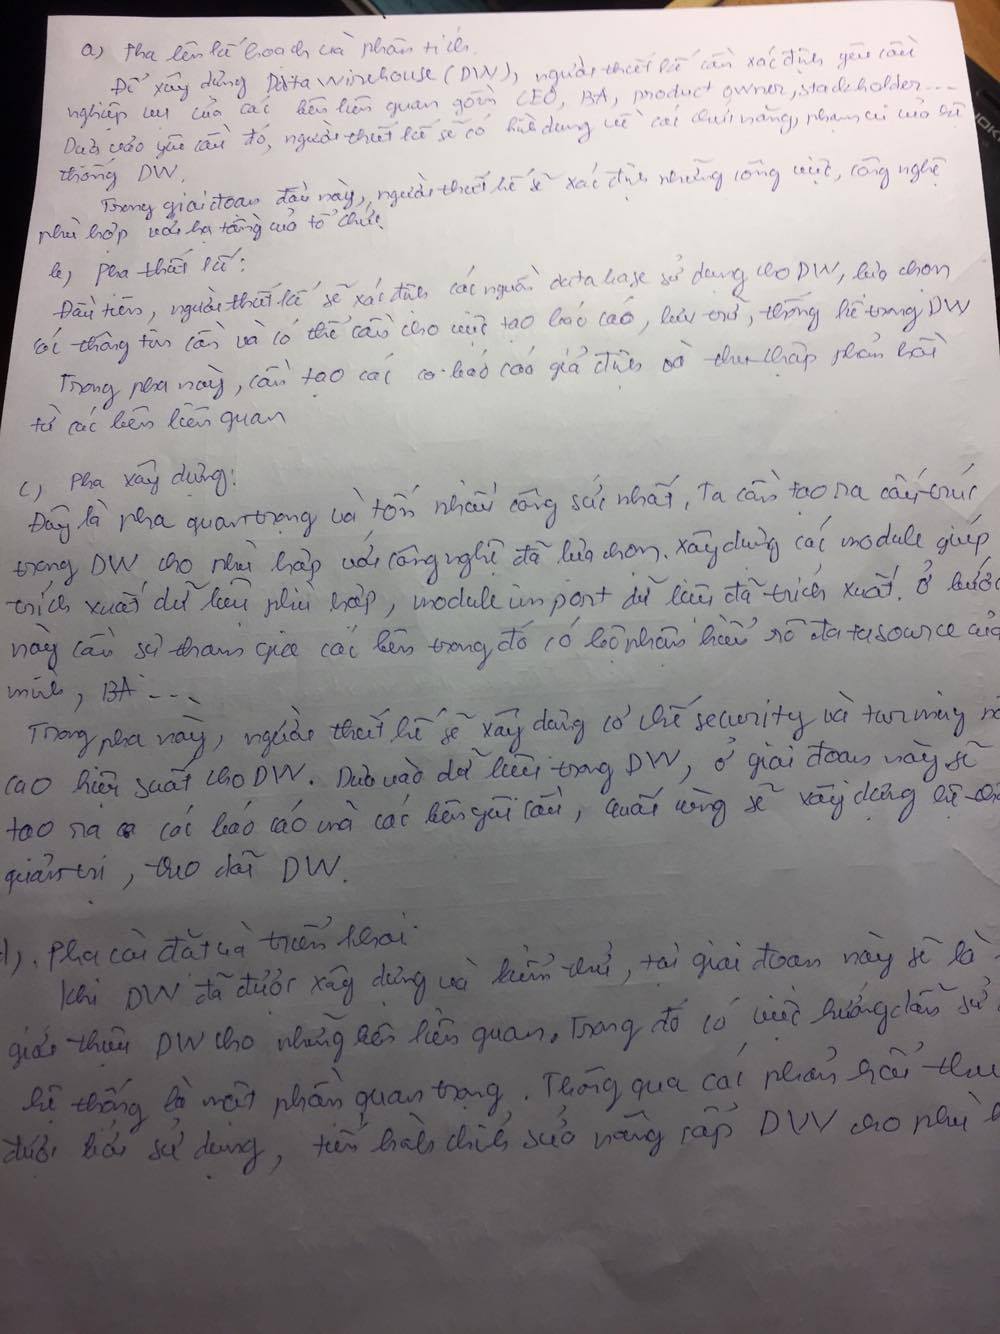 a) Pha lên kế hoạch và phân tích.
Để xây dựng Data Wirehouse (DW), người thiết kế cần xác định yêu cầu
nghiệp vụ của các bên liên quan gồm CEO, BA, product owner, stackholder...
Dựa vào yêu cầu đó, người thiết kế sẽ có hình dung về các chức năng, phạm vi của hệ
thống DW.
Trong giai đoạn đầu này, người thiết kế sẽ xác định những công việc, công nghệ
phù hợp với hạ tầng của tổ chức.
b) Pha thiết kế:
Đầu tiên, người thiết kế sẽ xác định các nguồn database sử dụng cho DW, lựa chọn
các thông tin cần và có thể cần cho việc tạo báo cáo, lưu trữ, thống kê trong DW
Trong pha này, cần tạo các báo cáo giả định và thu thập phản hồi
từ các bên liên quan
c) Pha xây dựng:
Đây là pha quan trọng và tốn nhiều công sức nhất, Ta cần tạo ra cấu trúc
trong DW cho phù hợp với công nghệ đã lựa chọn. Xây dựng các module giúp
trích xuất dữ liệu phù hợp, module import dữ liệu đã trích xuất. Ở bước
này cần sự tham gia các bên trong đó có bộ phận hiểu rõ datasource của
mình, BA ...
Trong pha này, người thiết kế sẽ xây dựng cơ chế security và turning
cao hiệu suất cho DW. Dựa vào dữ liệu trong DW, ở giai đoạn này sẽ
tạo ra các báo cáo mà các bên yêu cầu, cuối cùng sẽ xây dựng
quản trị, theo dõi DW.
d). Pha cài đặt và triển khai
Khi DW đã được xây dựng và kiểm thử, tại giai đoạn này sẽ là
giới thiệu DW cho những bên liên quan. Trong đó có việc hướng dẫn sử
hệ thống là một phần quan trọng. Thông qua các phản hồi thu
được khi sử dụng, tiến hành chỉnh sửa nâng cấp DW cho phù